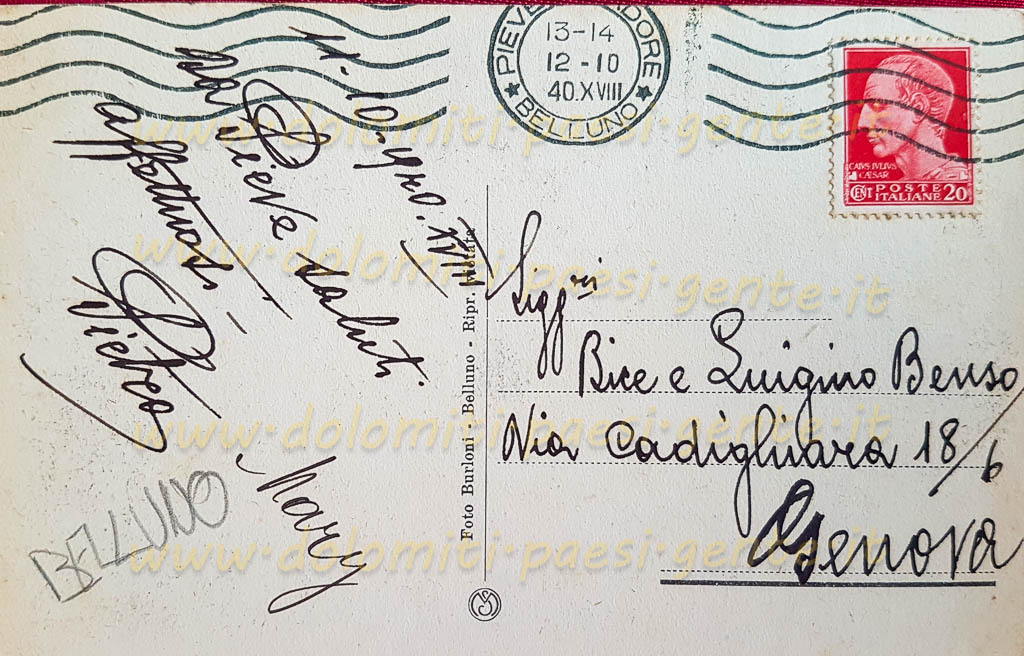 11-10-940.XVIII
Da Pieve saluti
affettuosi -
Pietro
Mary
BELLUNO
Foto Burloni - Belluno - Ripr. vietata
PIEVE CADORE
13-14
12-10
40.XVIII
★ BELLUNO ★
CAIVS IVLIVS
CÆSAR
CENT POSTE
ITALIANE 20
Sigg.ri
Bice e Luigino Benso
Via Cadighiara 18/6
Genova
www·dolomiti·paesi·gente·it
www·dolomiti·paesi·gente·it
www·dolomiti·paesi·gente·it
www·dolomiti·paesi·gente·it